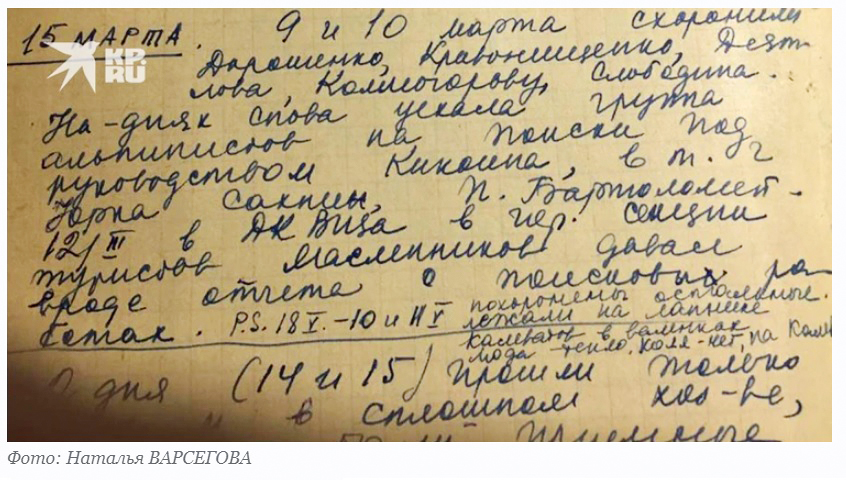 15 МАРТА. 9 и 10 марта схоронили
KP.RU
Дорошенко, Кривонищенко, Дят-
лова, Колмогорову, Слободина.
На-днях снова уехала группа
альпинистов на поиски под
руководством Кикоина, в т. ч
Юрка Сакнцы, П. Бартоломей-
12/III в ДК Виза в гор. секции
туристов Масленников давал
вроде отчета о поисковых ра-
ботах. P.S. 18 V. - 10 и 11 V похоронены остальные.
лежали на лапнике
в валенках
Люда - тело, Коля - нет, на
дня (14 и 15) прошли только
в сплошном хоз-ве,
Фото: Наталья ВАРСЕГОВА